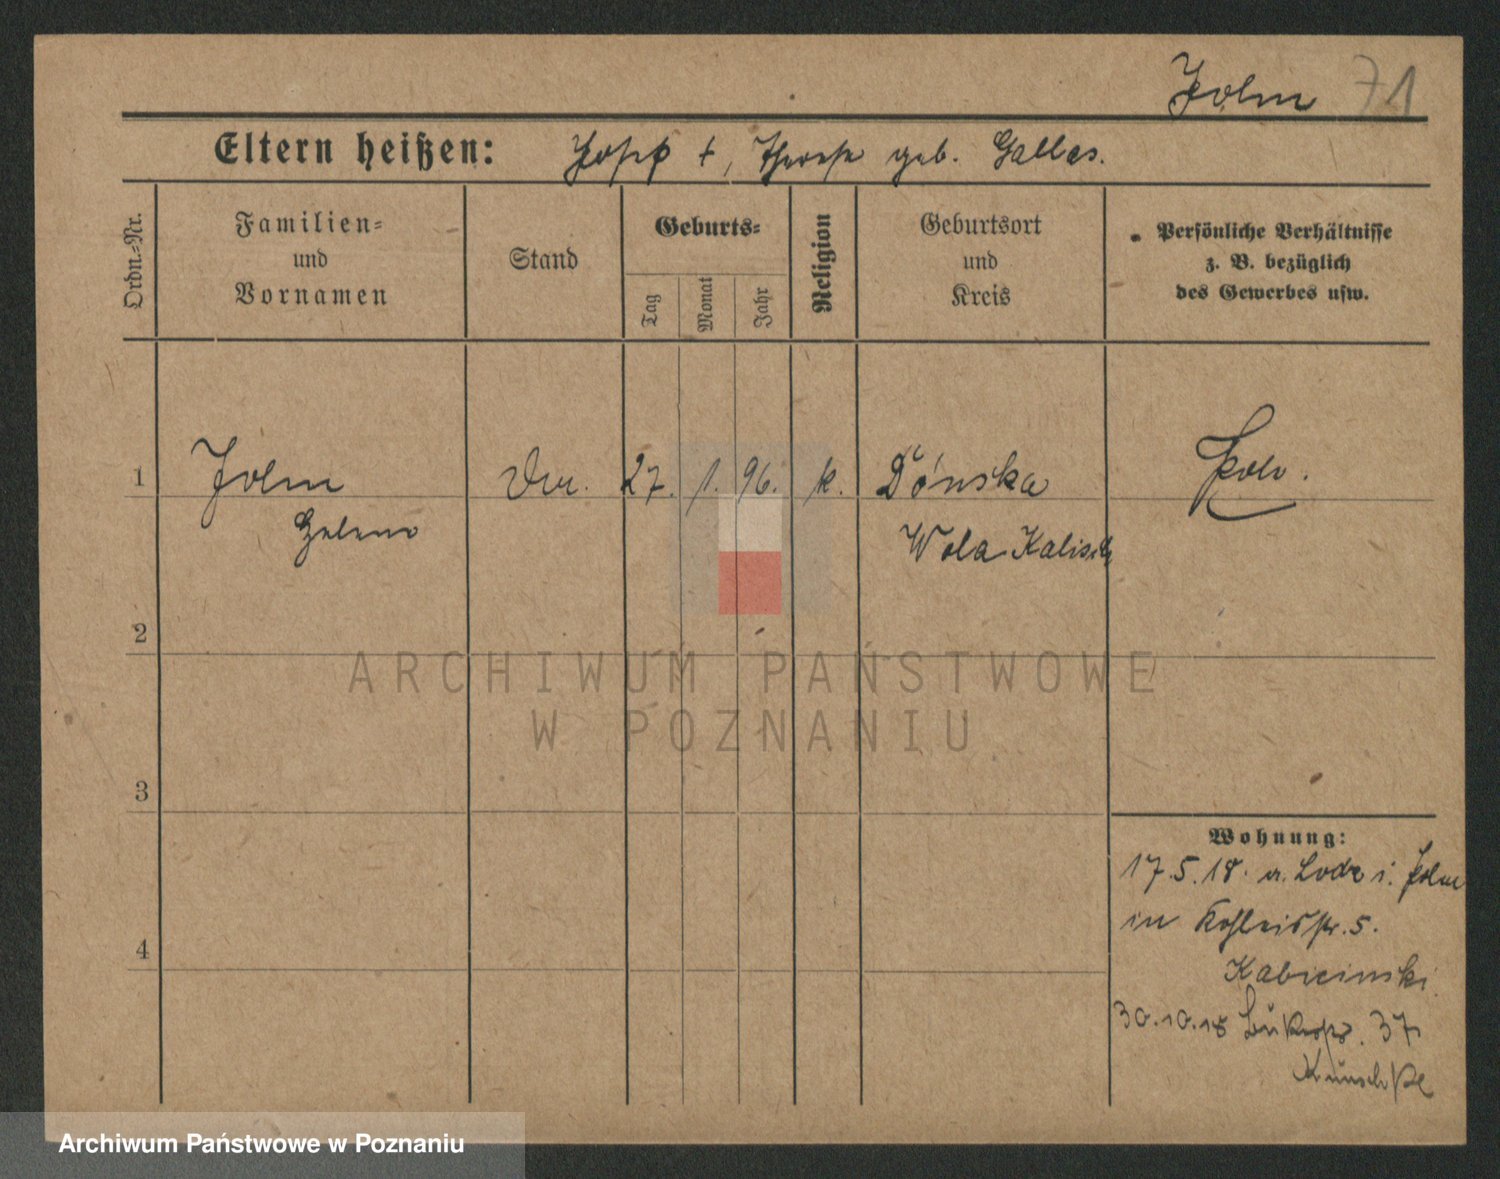 Jolm 71
Eltern heißen: Josef †, Therese geb. Gallas.
Ordn.=Nr.
Familien=
und
Vornamen
Stand
Geburts=
Tag
Monat
Jahr
Religion
Geburtsort
und
Kreis
Persönliche Verhältnisse
z. B. bezüglich
des Gewerbes usw.
1 Jolm 27. 1. 96. k. Dónska
Wola Kalisch
2
3
4
Wohnung:
17.5.18. a. Lodz i.
in 5.
30.10.18 37
ARCHIWUM PAŃSTWOWE
W POZNANIU
Archiwum Państwowe w Poznaniu